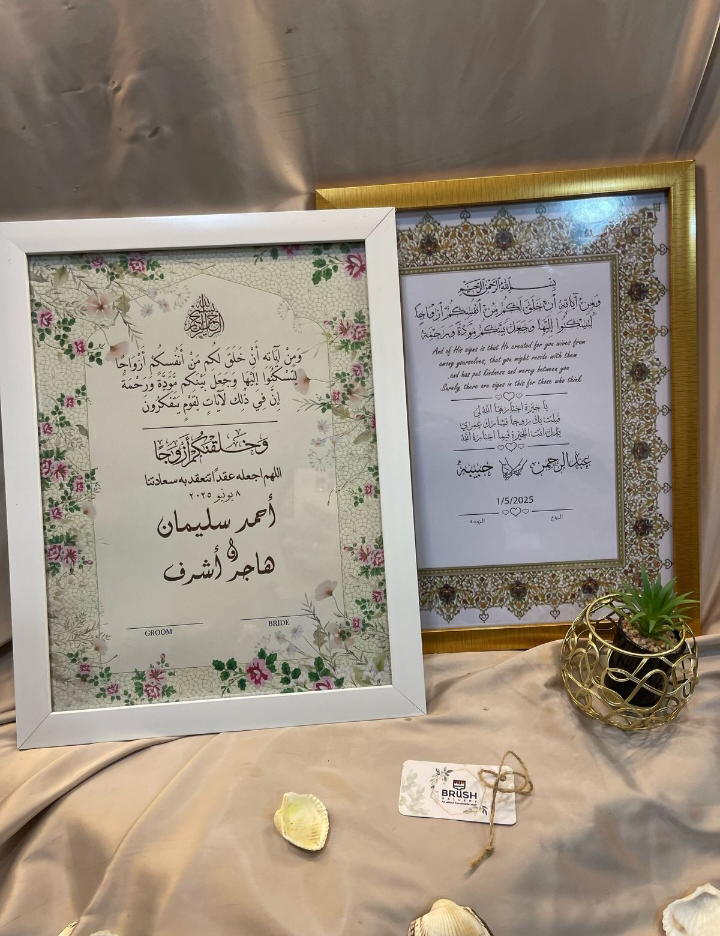 بسم الله الرحمن الرحيم
وَمِنْ آيَاتِهِ أَنْ خَلَقَ لَكُم مِّنْ أَنفُسِكُمْ أَزْوَاجًا
لِّتَسْكُنُوا إِلَيْهَا وَجَعَلَ بَيْنَكُم مَّوَدَّةً وَرَحْمَةً
إِنَّ فِي ذَلِكَ لَآيَاتٍ لِّقَوْمٍ يَتَفَكَّرُونَ
وَخَلَقْنَاكُمْ أَزْوَاجًا
اللهم اجعله عقدا تنعقد به سعادتنا
٨ يونيو ٢٠٢٥
أحمد سليمان
و
هاجر أشرف
GROOM
BRIDE
بسم الله الرحمن الرحيم
وَمِنْ آيَاتِهِ أَنْ خَلَقَ لَكُم مِّنْ أَنفُسِكُمْ أَزْوَاجًا
لِّتَسْكُنُوا إِلَيْهَا وَجَعَلَ بَيْنَكُم مَّوَدَّةً وَرَحْمَةً
And of His signs is that He created for you wives from
among yourselves, that you might reside with them
and has put kindness and mercy between you
Surely there are signs in this for those who think
يا خيرة اختارها الله لي
قبلت بك زوجا
فيما اختاره الله
عبدالرحمن حبيبة
1/5/2025
الزوج
الزوجة
BRUSH
GALLERY